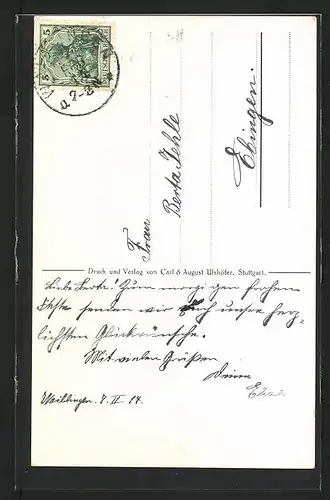 5 5
7-8
Frau
Berta Jehle
Ebingen.
Druck und Verlag von Carl & August Ulshöfer, Stuttgart.
Liebe Berta! Zum morgigen frohen
Feste senden wir Euch unsere herz-
lichsten Glückwünsche.
Mit vielen Grüßen
Deine
Waiblingen, 7. II 14.